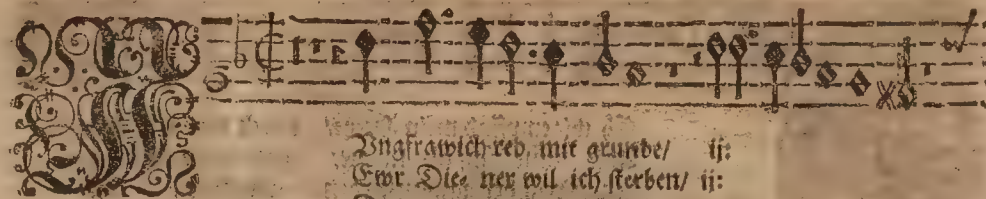 Vngfraw ich red mit grunde/ ij:
Ewr Die- ner wil ich sterben/ ij: